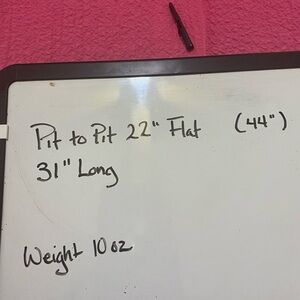 Pit to Pit 22" Flat (44")
31" Long
Weight 10 oz